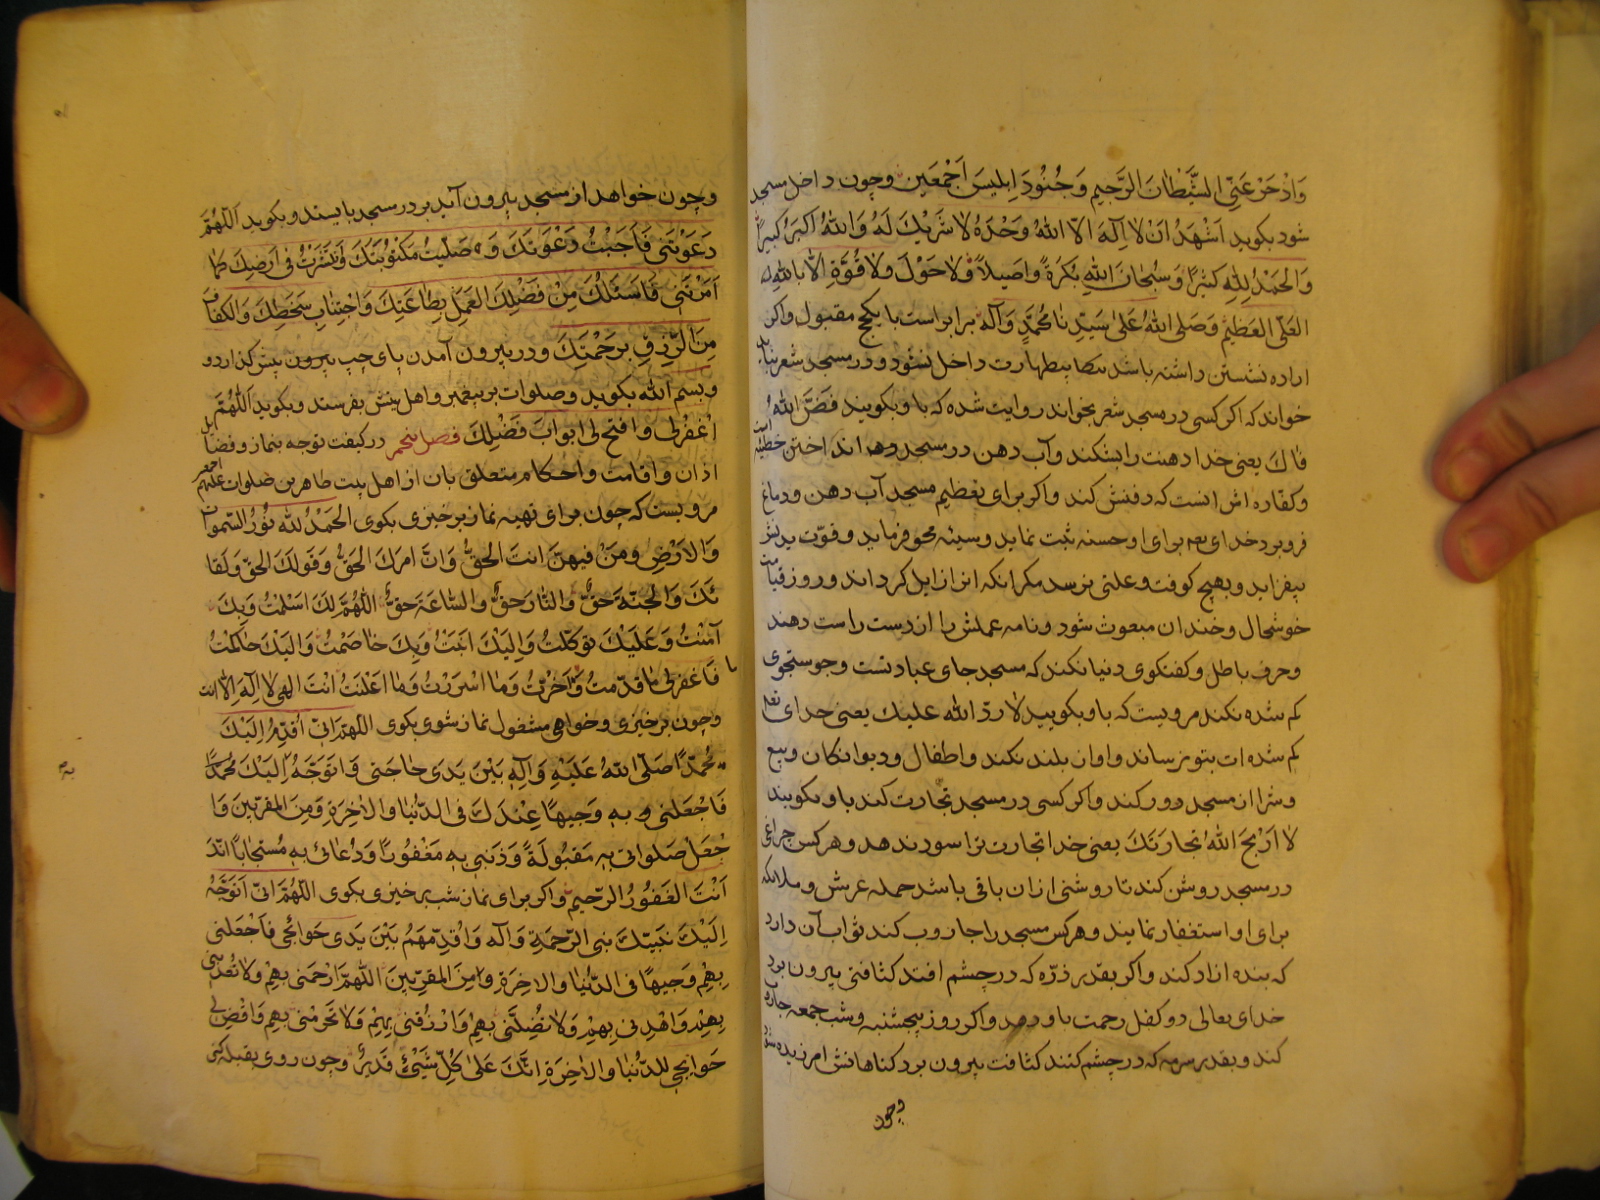 وَادْحَرْ عَنِّی الشَّیْطانَ الرَّجیمِ وَجُنُودَ اِبلیسَ اَجْمَعینَ وچون داخل مسجد
شود بکوید اَشْهَدُ اَنْ لا اِلهَ الاّ اللهُ وَحْدَهُ لا شَریْكَ لَهُ وَاللهُ اَکبَرُ کبیراً
وَالْحَمْدُ لِلّهِ کثیراً وَسُبْحانَ اللهِ بُکرَةً وَاصیلاً وَلاحَوْلَ وَلا قُوَّةَ اِلاّ باللهِ
العَلّی العَظیمُ وَصَلی اللهُ عَلیٰ سَیِّدِنا مُحَمَّدٍ وَآلهِ برابر است با یکحج مقبول واکر
اراده نشستن داشته باشد بیطهارت داخل نشود ودر مسجد شعر نباید
خواند که اکر کسی در مسجد شعر بخواند روایت شده که باو بکویند فَضَّ اللهُ
فاكَ یعنی خدا دهنت را بشکند وآب دهن در مسجد انداختن خطیئه است
وکفاره اش انست که دفنش کند واکر برای تعظیم مسجد آب دهن ودماغ
فرو برد خدای برای او حسنه ثبت نماید وسیئه محو فرماید وقوّت بدنش
بیفزاید وبهیچ کوفت وعلتی نرسد مکر انکه انرا زایل کرداند وروز قیامت
خوشحال وخندان مبعوث شود ونامه عملش را از دست راست دهند
وحرف باطل وکفتکوی دنیا نکند که مسجد جای عبادتست وجوستجوی
کم شده نکند مرویست که باو بکویید لا ردّ الله علیك یعنی خدای
کم شده ات بتو نرساند واواز بلند نکند واطفال ودیوانکان وبیع
وشرا از مسجد دور کند واکر کسی در مسجد تجارت کند باو بکویند
لا اَرْبَحَ اللهُ تجارَتَكَ یعنی خدا تجارت ترا سود ندهد وهر کس چراغی
در مسجد روشن کند تا روشنی ازان باقی باشد حمله عرش وملائکه
برای او استغفار نمایند وهر کس مسجد را جاروب کند ثواب آن دارد
که بنده ازاد کند واکر بقدر ذرّه که در چشم افتد کثافتی بیرون برد
خدای تعالی دو کفل رحمت باو دهد واکر روز پنجشنبه وشب جمعه جاروب
کند وبقدر سرمه که در چشم کنند کثافت بیرون برد کناهانش امرزیده شود
وچون
وچون خواهد از مسجد بیرون آید بر در مسجد بایستد وبکوید اَللّهُمَّ
دَعَوْتَنی فَاَجَبْتُ دَعْوَتَكَ وَصَلَّیتُ مَکتُوبَتَكَ وَانْتَشَرْتُ فی اَرضِكَ کما
اَمَرْتَنی فَاَسئَلُكَ مِنْ فَضْلِكَ العَمَلَ بِطاعَتِكَ وَاجْتِنابِ سَخَطِكَ وَالکفافَ
مِنَ الرِّزقِ برَحْمَتِكَ ودر بیرون آمدن پای چپ بیرون پیش کذارد و
وبسم الله بکوید وصلوات بر پیغمبر واهل بیتش بفرستد وبکوید اَللّهُمَّ
اغْفِرْلی وَافتح لی ابوابَ فَضْلِكَ فصل پنجم در کیفیت توجه بنماز وفضایل
اذان واقامت واحکام متعلق بان از اهل بیت طاهرین صلوات علیهم اجمعین
مرویست که چون برای تهیه نماز برخیزی بکوی الحَمْدُ للهِ نُورُ السَّموات
وَالاَرْضِ ومَنْ فیهِنَّ انتَ الحَقُّ وَانَّ امرَكَ الحَقُّ وَقَولَكَ الحَقُّ وَلِقا
ئَكَ وَالجَنَّةَ حَقٌّ والنّارَ حَقٌّ والسّاعَةَ حَقٌّ اللّهُمَّ لَكَ اَسْلَمْتُ وَبِكَ
آمَنْتُ وَعَلَیْكَ تَوکّلْتُ وَاِلَیْكَ اَنَبْتُ وَبِكَ خاصَمْتُ وَالَیْكَ حاکَمْتُ
فَاغفِرلی ما قَدَّمتُ وَاَخّرْتُ وَما اسْرَرْتُ وَما اَعْلَنْتُ اَنْتَ الهی لا اِلهَ اِلاّ انت
وچون برخیزی وخواهی مشغول نماز شوی بکوی اللّهُمَّ اِنّی اُقَدِّمُ اِلَیْكَ
مُحَمَّداً صَلَّی اللهُ عَلَیْهِ وَآلِهِ بَیْنَ یَدَی حاجَتی وَاتَوَجَّهُ اِلَیْكَ مُحَمَّداً
فَاجْعَلنی بِهِ وَجیهاً عِنْدَكَ فی الدُّنیا والاٰخِرَةِ وَمِنَ المقرّبینَ وَا
جْعَلْ صَلواتی بِهِ مَقبُولَةً وَذَنبی بِهِ مَغْفُوراً وَدُعائی بِهِ مُستَجاباً انّكَ
اَنْتَ الغَفُورُ الرَّحیمُ واکر برای نماز شب برخیزی بکوی اللّهُمَّ اِنّی اَتَوَجَّهُ
اِلَیْكَ بنَبیّكَ نبی الرّحمَةِ وَآلهِ وَاُقَدِّمُهُم بَیْنَ یَدَی حَوائجی فَاجْعَلنی
بِهِمْ وَجیهاً فی الدُّنیا والاخِرَةِ وَمِنَ المقرّبینَ اللّهُمَّ ارْحَمْنی بِهِمْ وَلا تُعَذِّبنی
بِهِمْ وَاهْدِنی بِهِمْ وَلا تُضِلَّنی بِهِمْ وَارْزُقنی بِهِمْ وَلا تَحرمنی بِهِم وَاقْضِ لی
حَوائجی للدُّنیا والاخِرَةِ اِنَّكَ عَلیٰ کُلِّ شَیْئٍ قَدیرٌ وچون روی بقبله کنی